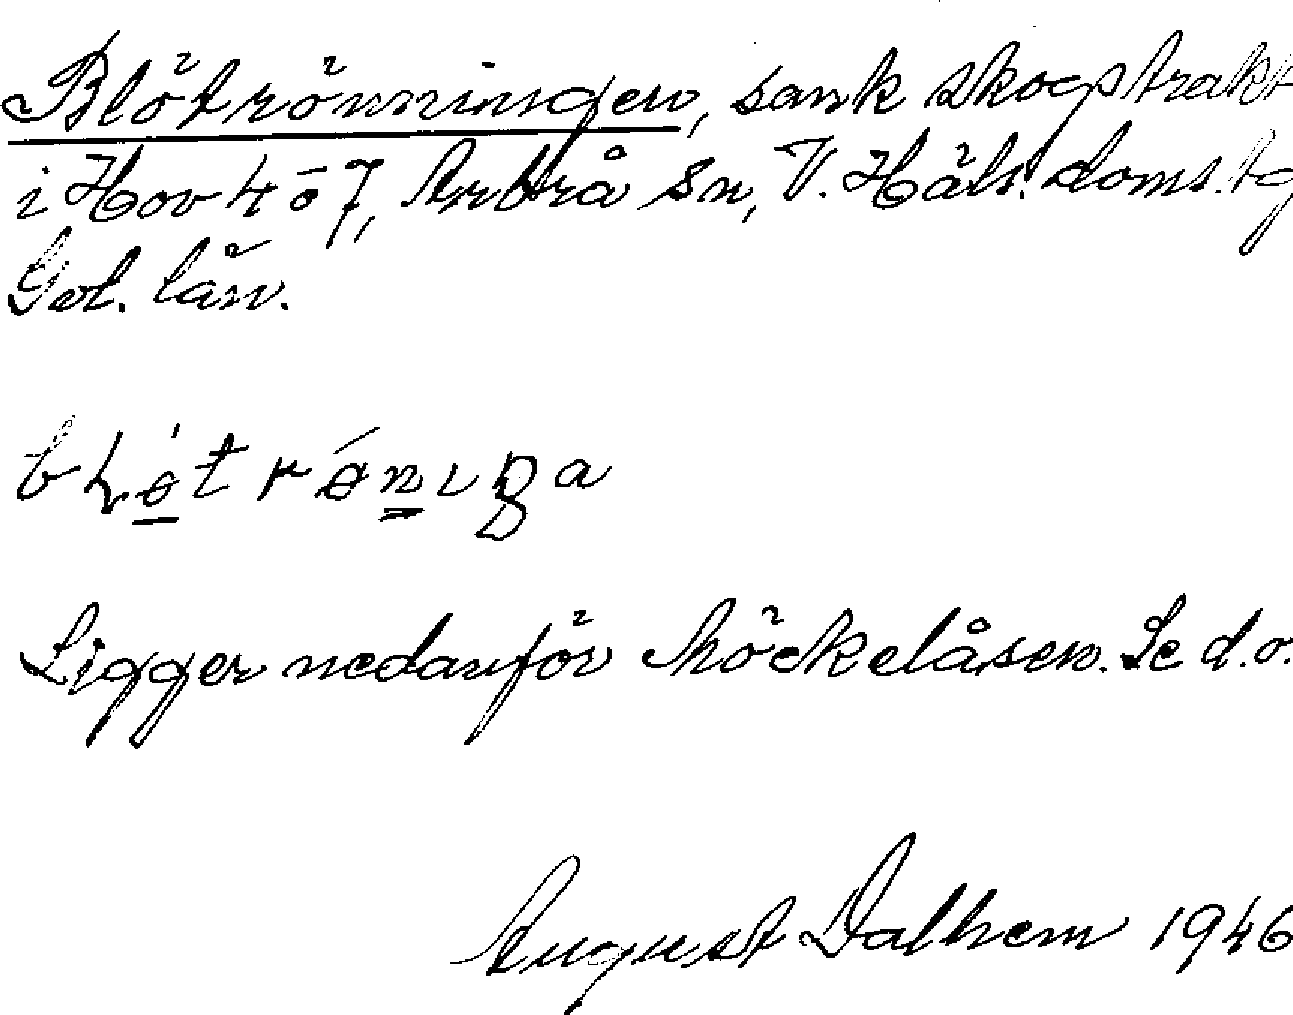 Blötrönningen, sank skogstrakt
i Hov 4 o 7, Arbrå sn, V. Häls. doms. tg
Gvl. län.
Ligger nedanför Möckelåsen. Se d.o.
August Dalhem 1946